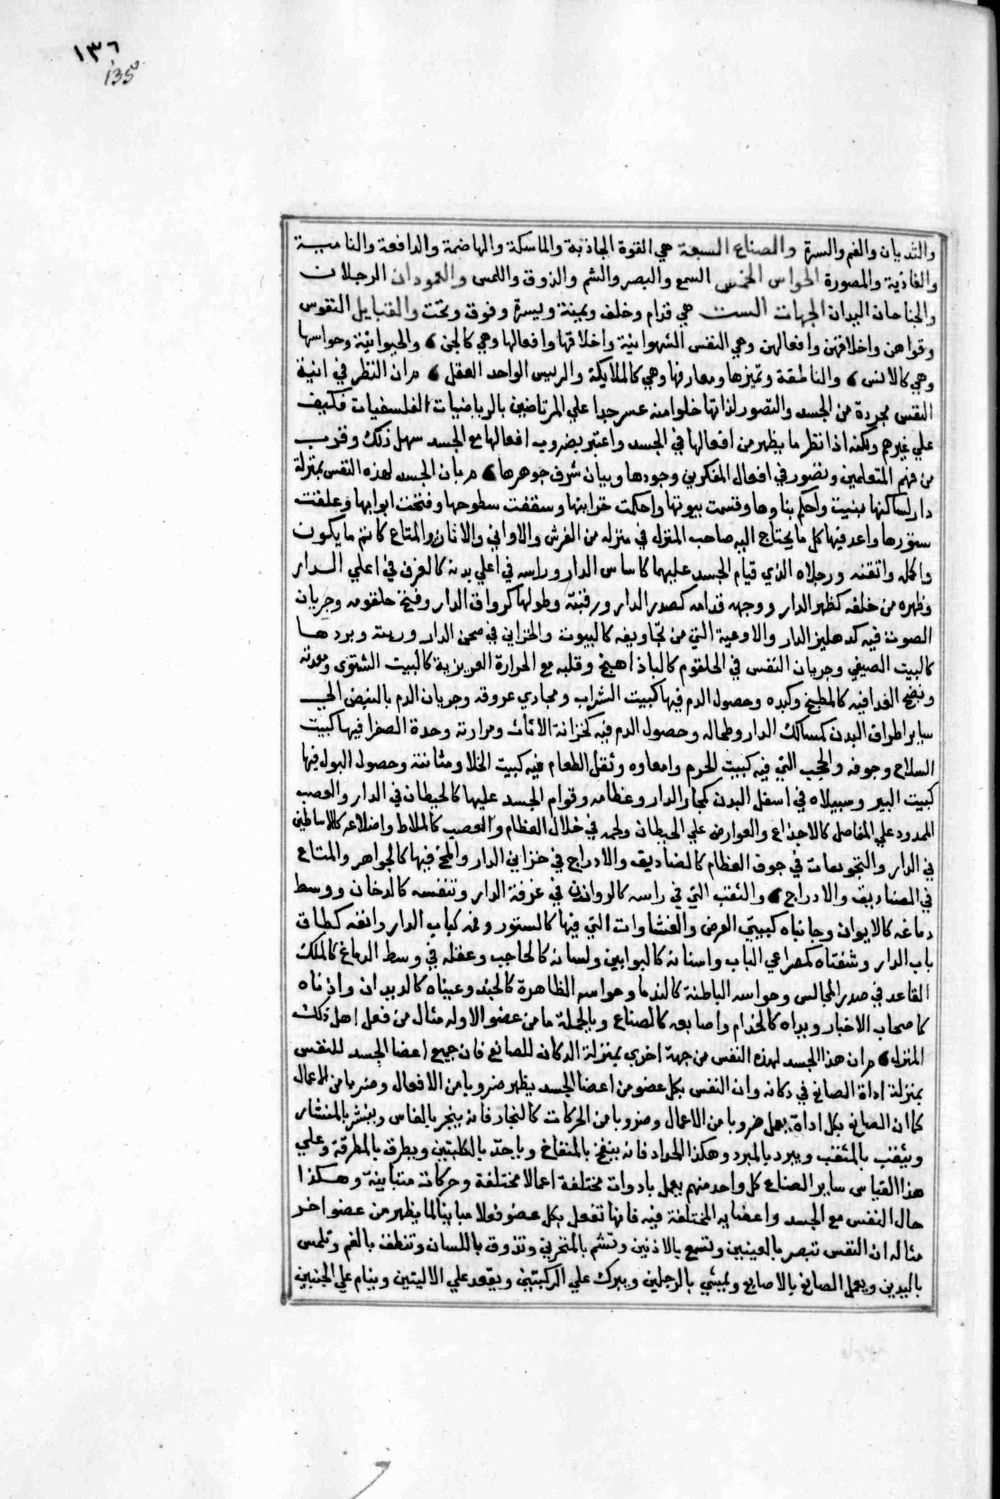 ١٣٦
135
والثديان والفم والسرة والصناع السبعة هي القوة الجاذبة والماسكة والهاضمة والدافعة والنامية
والغاذية والمصورة الحواس الخمس السمع والبصر والشم والذوق واللمس والعمودان الرجلان
والجناحان اليدان الجهات الست هي قدام وخلف ويمنة ويسرة وفوق وتحت والقبايل النفوس
وقواهن واخلاقهن وافعالهن وهي النفس الشهوانية واخلاقها وافعالها وهي كالجن والحيوانية وحواسها
وهي كالانس والناطقة وتميزها ومعارفها وهي كالملايكة والرييس الواحد العقل ثم ان النظر في انية
النفس مجردة من الجسد والتصور لذاتها خلوا منه عسر جدا علي المرتاضين بالرياضيات الفلسفيات فكيف
علي غيرهم ولكنه اذا نظر ما يظهر من افعالها في الجسد واعتبر بضروب افعالها مع الجسد سهل ذلك وقرب
من فهم المتعلمين وتصور في افعال المفكرين وجودها وبيان شرف جوهرها ثم بان الجسد لهذه النفس بمنزلة
دار لساكنها بنيت واحكم بناوها وقسمت بيوتها واحكمت خزاينها وسقفت سطوحها وفتحت ابوابها وعلقت
ستورها واعد فيها كل ما يحتاج اليه صاحب المنزل في منزله من الفرش والاواني والاثاث والمتاع كاتم ما يكون
واكمله واتقنه ورجلاه الذي قيام الجسد عليهما كاساس الدار وراسه في اعلي بدنه كالغرف في اعلي الدار
وظهره من خلفه كظهر الدار ووجهه قدامه كصدر الدار ورقبته وطولها كرواق الدار وفتح حلقومه وجريان
الصوت فيه كدهليز الدار والاوعية التي من تجاويفه كالبيوت والخزاين في صحن الدار وريته وبردها
كالبيت الصيفي وجريان النفس في الحلقوم كالباذاهنج وقلبه مع الحرارة الغريزية كالبيت الشتوي ومعدته
ونضج الغدا فيه كالمطبخ وكبده وحصول الدم فيها كبيت الشراب ومجاري عروقه وجريان الدم بالنبض الي
ساير اطراف البدن كمسالك الدار وطحاله وحصول الدم فيه كخزانة الاثاث ومرارته وحدة الصفرا فيها كبيت
السلاح وجوفه والحجب التي فيه كبيت الحرم وامعاوه وثفل الطعام فيه كبيت الخلا ومثانته وحصول البول فيها
كبيت البير وسبيلاه في اسفل البدن كمجار الدار وعظامه وقوام الجسد عليها كالحيطان في الدار والعصب
الممدود علي المفاصل كالاجذاع والعوارض علي الحيطان ولحمه في خلال العظام والعصب كالملاط واضلاعه كالاساطين
في الدار والتجويفات في جوف العظام كالصناديق والادراج في خزاين الدار والمخ فيها كالجواهر والمتاع
في الصناديق والادراج والثقب التي في راسه كالروازن في غرفة الدار وتنفسه كالدخان ووسط
دماغه كالايوان وجانباه كبيتي العرض والغشاوات التي فيها كالستور وفمه كباب الدار وانفه كطاق
باب الدار وشفتاه كمصراعي الباب واسنانه كالبوابين ولسانه كالحاجب وعقله في وسط الدماغ كالملك
القاعد في صدر المجالس وحواسه الباطنة كالندما وحواسه الظاهرة كالجند وعيناه كالديدبان واذناه
كاصحاب الاخبار ويداه كالخدام واصابعه كالصناع وبالجملة ما من عضو الا وله مثال من فعل اهل ذلك
المنزل ثم ان هذا الجسد لهذه النفس من جهة اخري بمنزلة الدكان للصانع فان جميع اعضا الجسد للنفس
بمنزلة اداة الصانع في دكانه وان النفس بكل عضو من اعضا الجسد يظهر ضروبا من الافعال وضربا من الاعمال
كما ان الصانع بكل اداة يعمل ضروبا من الاعمال وضروبا من الحركات كالنجار فانه ينجر بالفاس وينشر بالمنشار
ويثقب بالمثقب ويبرد بالمبرد وهكذا الحداد فانه ينفخ بالمنفاخ وياخذ بالكلبتين ويطرق بالمطرقة وعلي
هذا القياس ساير الصناع كل واحد منهم يعمل بادوات مختلفة اعمالا مختلفة وحركات متباينة وهكذا
حال النفس مع الجسد واعضايه المختلفة فيه فانها تفعل بكل عضو فعلا مباينا لما يظهر من عضو اخر
مثاله ان النفس تبصر بالعينين وتسمع بالاذنين وتشم بالمنخرين وتذوق باللسان وتنطق بالفم وتلمس
باليدين ويعمل الصانع بالاصابع ويمشي بالرجلين ويبرك علي الركبتين ويقعد علي الاليتين وينام علي الجنبين